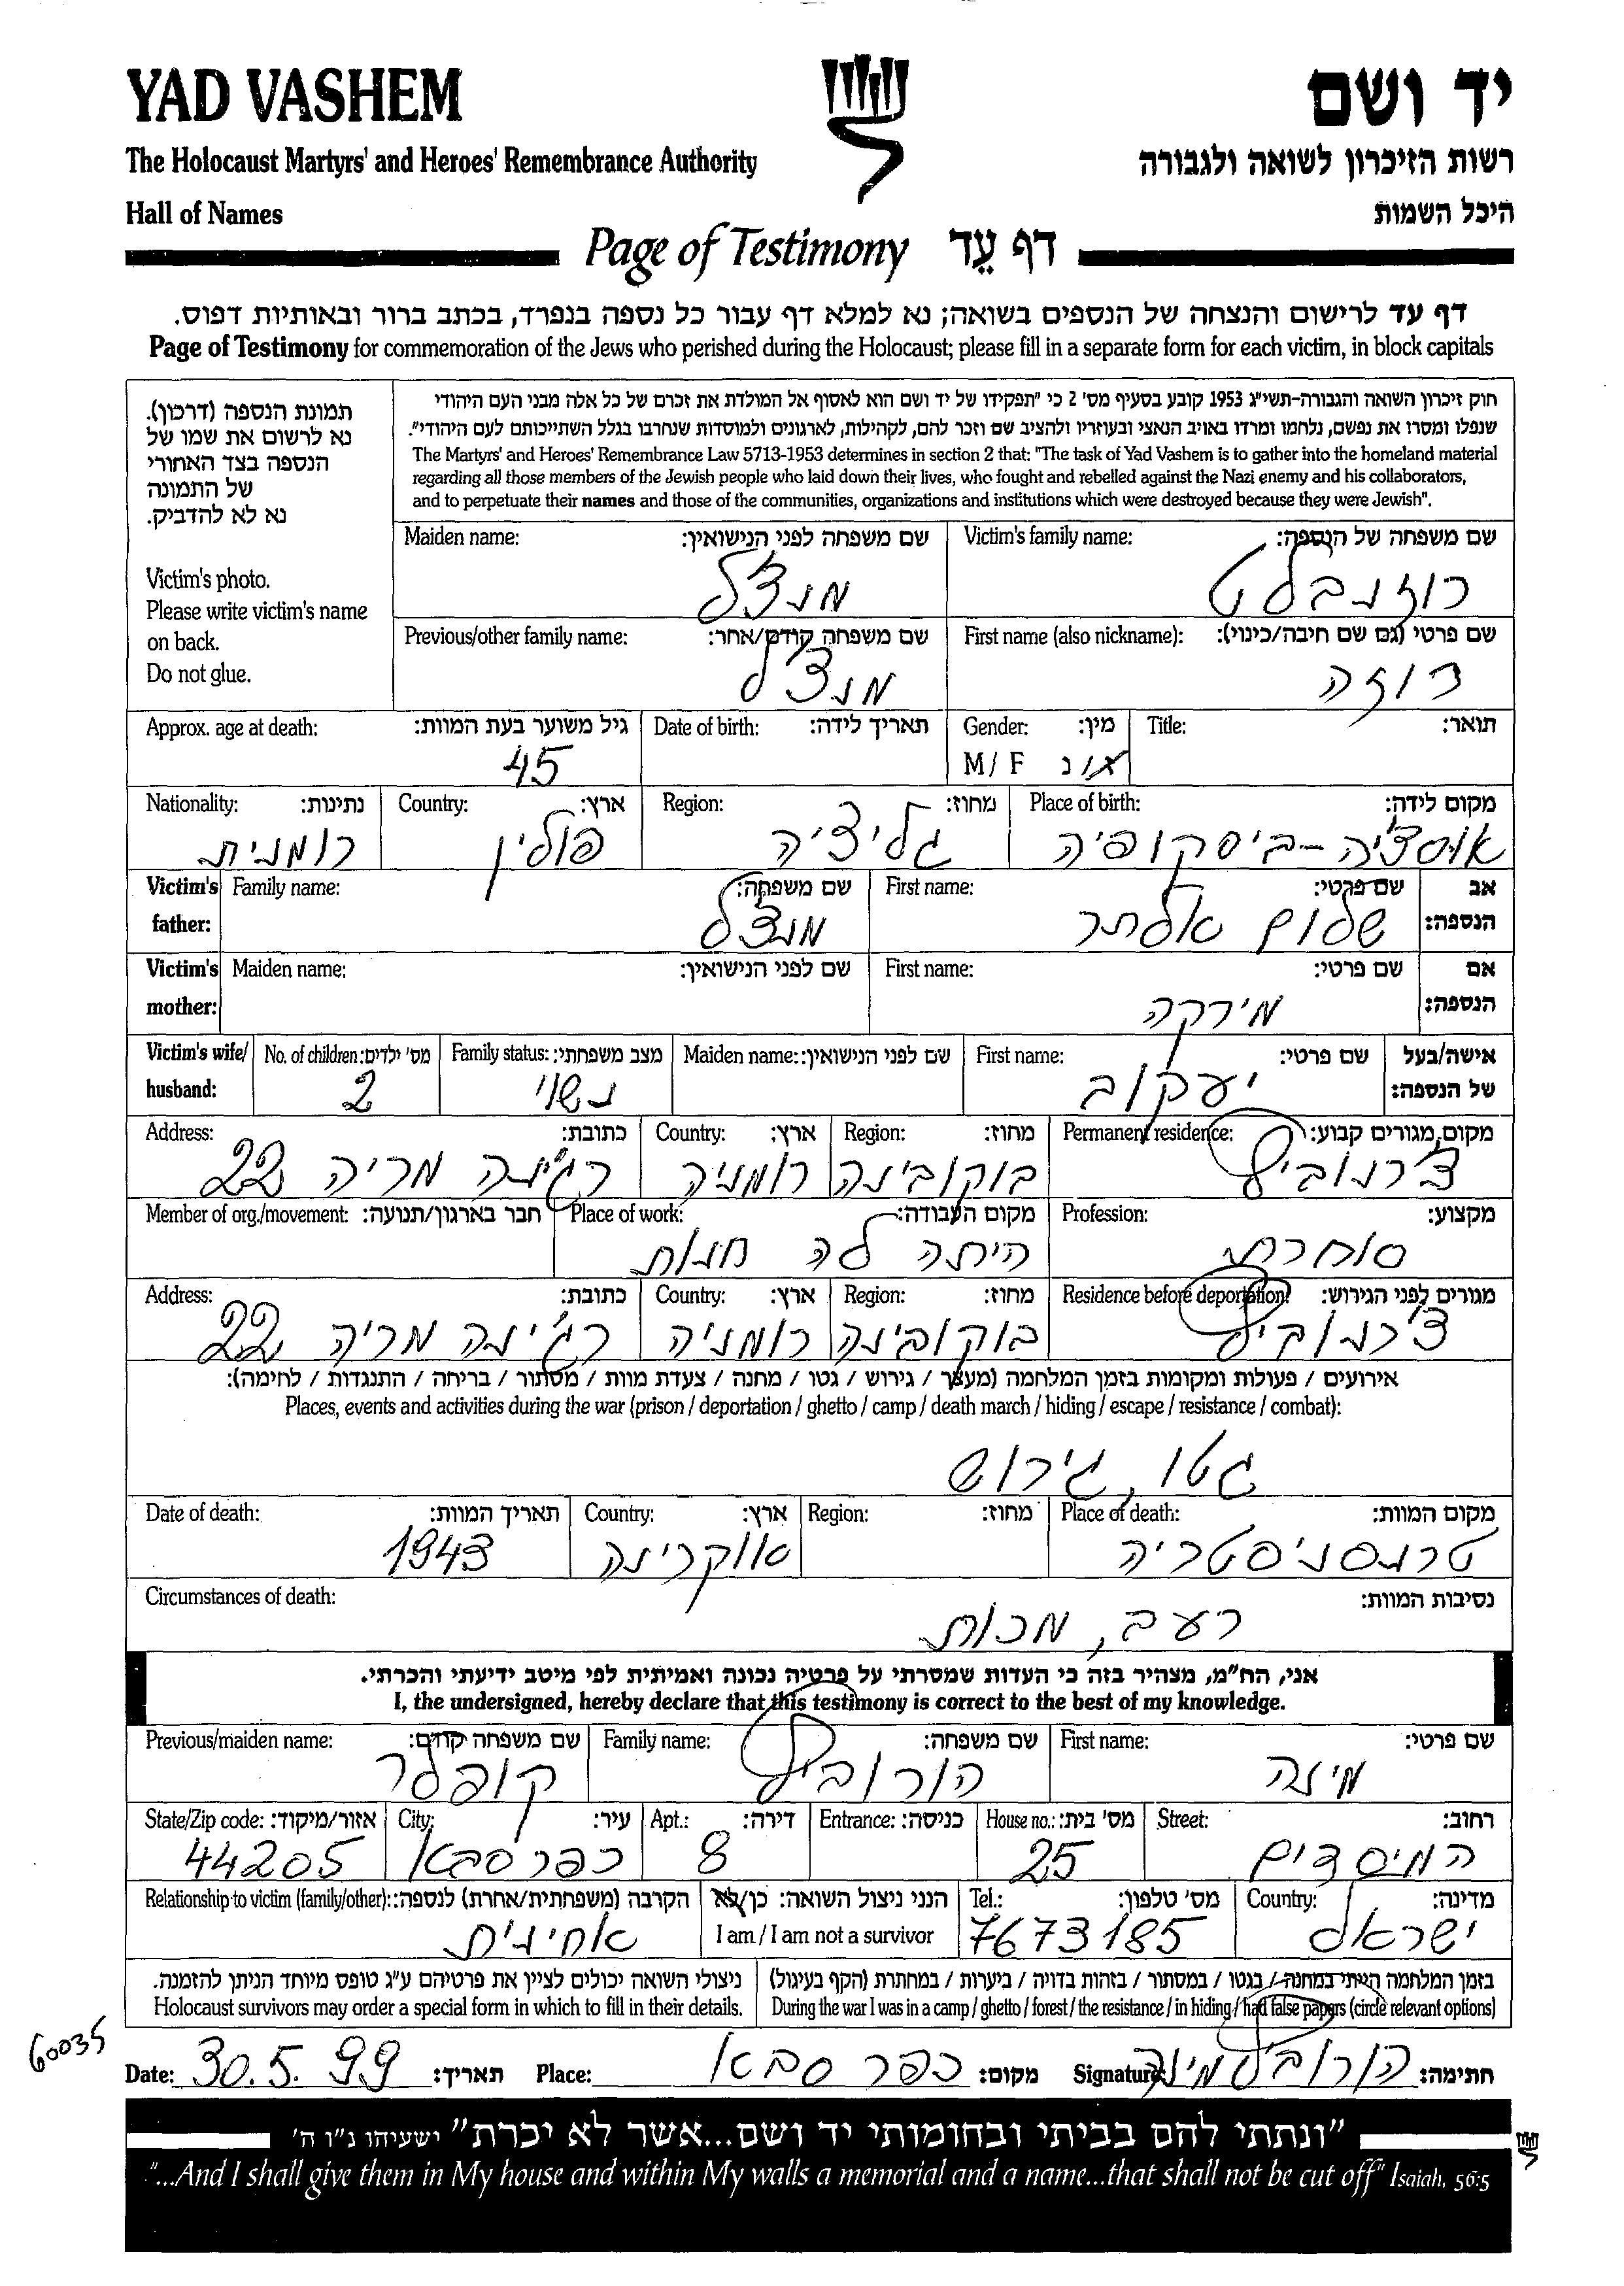 YAD VASHEM
יד ושם
The Holocaust Martyrs' and Heroes' Remembrance Authority
רשות הזיכרון לשואה ולגבורה
Hall of Names
היכל השמות
Page of Testimony דף עֵד
דף עד לרישום והנצחה של הנספים בשואה; נא למלא דף עבור כל נספה בנפרד, בכתב ברור ובאותיות דפוס.
Page of Testimony for commemoration of the Jews who perished during the Holocaust; please fill in a separate form for each victim, in block capitals
תמונת הנספה (דרכון).
נא לרשום את שמו של
הנספה בצד האחורי
של התמונה
נא לא להדביק.
Victim's photo.
Please write victim's name
on back.
Do not glue.
חוק זיכרון השואה והגבורה-תשי"ג 1953 קובע בסעיף מס' 2 כי "תפקידו של יד ושם הוא לאסוף אל המולדת את זכרם של כל אלה מבני העם היהודי
שנפלו ומסרו את נפשם, נלחמו ומרדו באויב הנאצי ובעוזריו ולהציב שם וזכר להם, לקהילות, לארגונים ולמוסדות שנחרבו בגלל השתייכותם לעם היהודי".
The Martyrs' and Heroes' Remembrance Law 5713-1953 determines in section 2 that: "The task of Yad Vashem is to gather into the homeland material
regarding all those members of the Jewish people who laid down their lives, who fought and rebelled against the Nazi enemy and his collaborators,
and to perpetuate their names and those of the communities, organizations and institutions which were destroyed because they were Jewish".
Victim's family name: שם משפחה של הנספה:
רוזנבלט
Maiden name: שם משפחה לפני הנישואין:
מנצ'ל
First name (also nickname): שם פרטי (גם שם חיבה/כינוי):
רוזה
Previous/other family name: שם משפחה קודם/אחר:
מנצ'ל
Title: תואר:
Gender: מין:
M / F ז/נ
Date of birth: תאריך לידה:
Approx. age at death: גיל משוער בעת המוות:
45
Place of birth: מקום לידה:
אוסציה-ביסקופיה
Region: מחוז:
גליציה
Country: ארץ:
פולין
Nationality: נתינות:
רומנית
Victim's father: אב הנספה:
First name: שם פרטי:
שלום אלתר
Family name: שם משפחה:
מנצ'ל
Victim's mother: אם הנספה:
First name: שם פרטי:
מירקה
Maiden name: שם לפני הנישואין:
Victim's wife/husband: אישה/בעל של הנספה:
First name: שם פרטי:
יעקוב
Maiden name: שם לפני הנישואין:
Family status: מצב משפחתי:
נשוי
No. of children: מס' ילדים:
2
Permanent residence: מקום מגורים קבוע:
צ'רנוביץ
Region: מחוז:
בוקובינה
Country: ארץ:
רומניה
Address: כתובת:
רג'ינה מריה 22
Profession: מקצוע:
סוחרת
Place of work: מקום העבודה:
היתה לה חנות
Member of org./movement: חבר בארגון/תנועה:
Residence before deportation: מגורים לפני הגירוש:
צ'רנוביץ
Region: מחוז:
בוקובינה
Country: ארץ:
רומניה
Address: כתובת:
רג'ינה מריה 22
אירועים / פעולות ומקומות בזמן המלחמה (מעצר / גירוש / גטו / מחנה / צעדת מוות / מסתור / בריחה / התנגדות / לחימה):
Places, events and activities during the war (prison / deportation / ghetto / camp / death march / hiding / escape / resistance / combat):
גטו, גירוש
Place of death: מקום המוות:
טרנסניסטריה
Region: מחוז:
Country: ארץ:
אוקרינה
Date of death: תאריך המוות:
1943
Circumstances of death: נסיבות המוות:
רעב, מכות
אני, הח"מ, מצהיר בזה כי העדות שמסרתי על פרטיה נכונה ואמיתית לפי מיטב ידיעתי והכרתי.
I, the undersigned, hereby declare that this testimony is correct to the best of my knowledge.
First name: שם פרטי:
מינה
Family name: שם משפחה:
הורוביץ
Previous/maiden name: שם משפחה קודם:
קופלר
Street: רחוב:
המיסדים
House no.: מס' בית:
25
Entrance: כניסה:
Apt.: דירה:
8
City: עיר:
כפר סבא
State/Zip code: אזור/מיקוד:
44205
Country: מדינה:
ישראל
Tel.: מס' טלפון:
7673185
הנני ניצול השואה: כן/לא
I am / I am not a survivor
Relationship to victim (family/other): הקרבה (משפחתית/אחרת) לנספה:
אחינית
בזמן המלחמה הייתי במחנה / בגטו / במסתור / בזהות בדויה / ביערות / במחתרת (הקף בעיגול)
During the war I was in a camp / ghetto / forest / the resistance / in hiding / had false papers (circle relevant options)
ניצולי השואה יכולים לציין את פרטיהם ע"ג טופס מיוחד הניתן להזמנה.
Holocaust survivors may order a special form in which to fill in their details.
60035
Date: 30.5.99 תאריך: Place: כפר סבא מקום: Signature: הורוביץ מינה חתימה:
"ונתתי להם בביתי ובחומותי יד ושם...אשר לא יכרת" ישעיהו נ"ו ה'
"...And I shall give them in My house and within My walls a memorial and a name...that shall not be cut off" Isaiah, 56:5